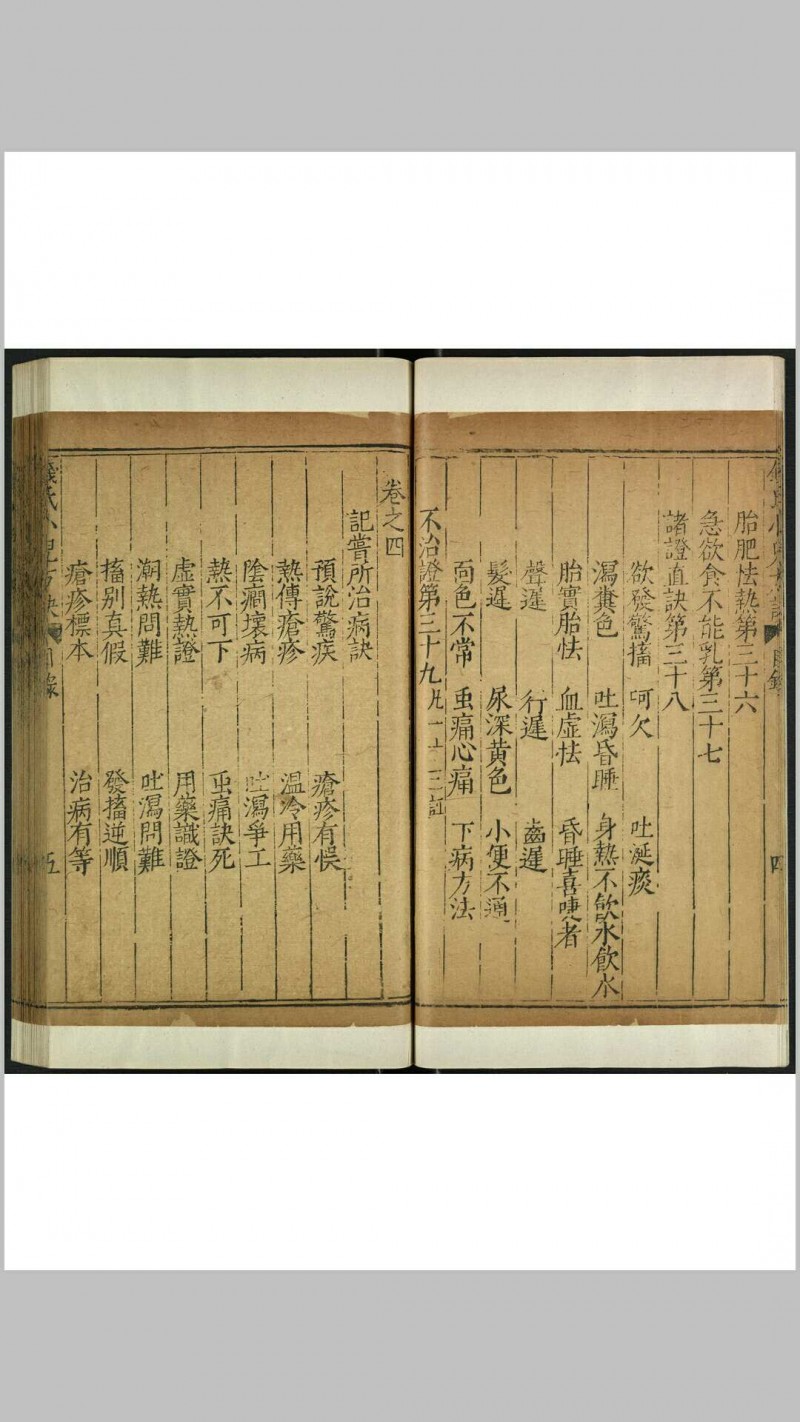 胎肥怯熱第三十六
急欲食不能乳第三十七
諸證直訣第三十八
欲發驚搐 呵欠 吐涎痰
瀉糞色 吐瀉昏睡 身熱不飲水飲水
胎實胎怯 血虛怯 昏睡喜嚏者
聲遲 行遲 齒遲
髮遲 尿深黃色 小便不通
面色不常 虫痛心痛 下病方法
不治證第三十九 凡一十三証
四
卷之四
記嘗所治病訣
預說驚疾 瘡疹有悮
熱傳瘡疹 温冷用藥
陰癇壞病 吐瀉爭工
熱不可下 虫痛訣死
虛實熱證 用藥識證
潮熱問難 吐瀉問難
搐別真假 發搐逆順
瘡疹標本 治病有等
目錄 五